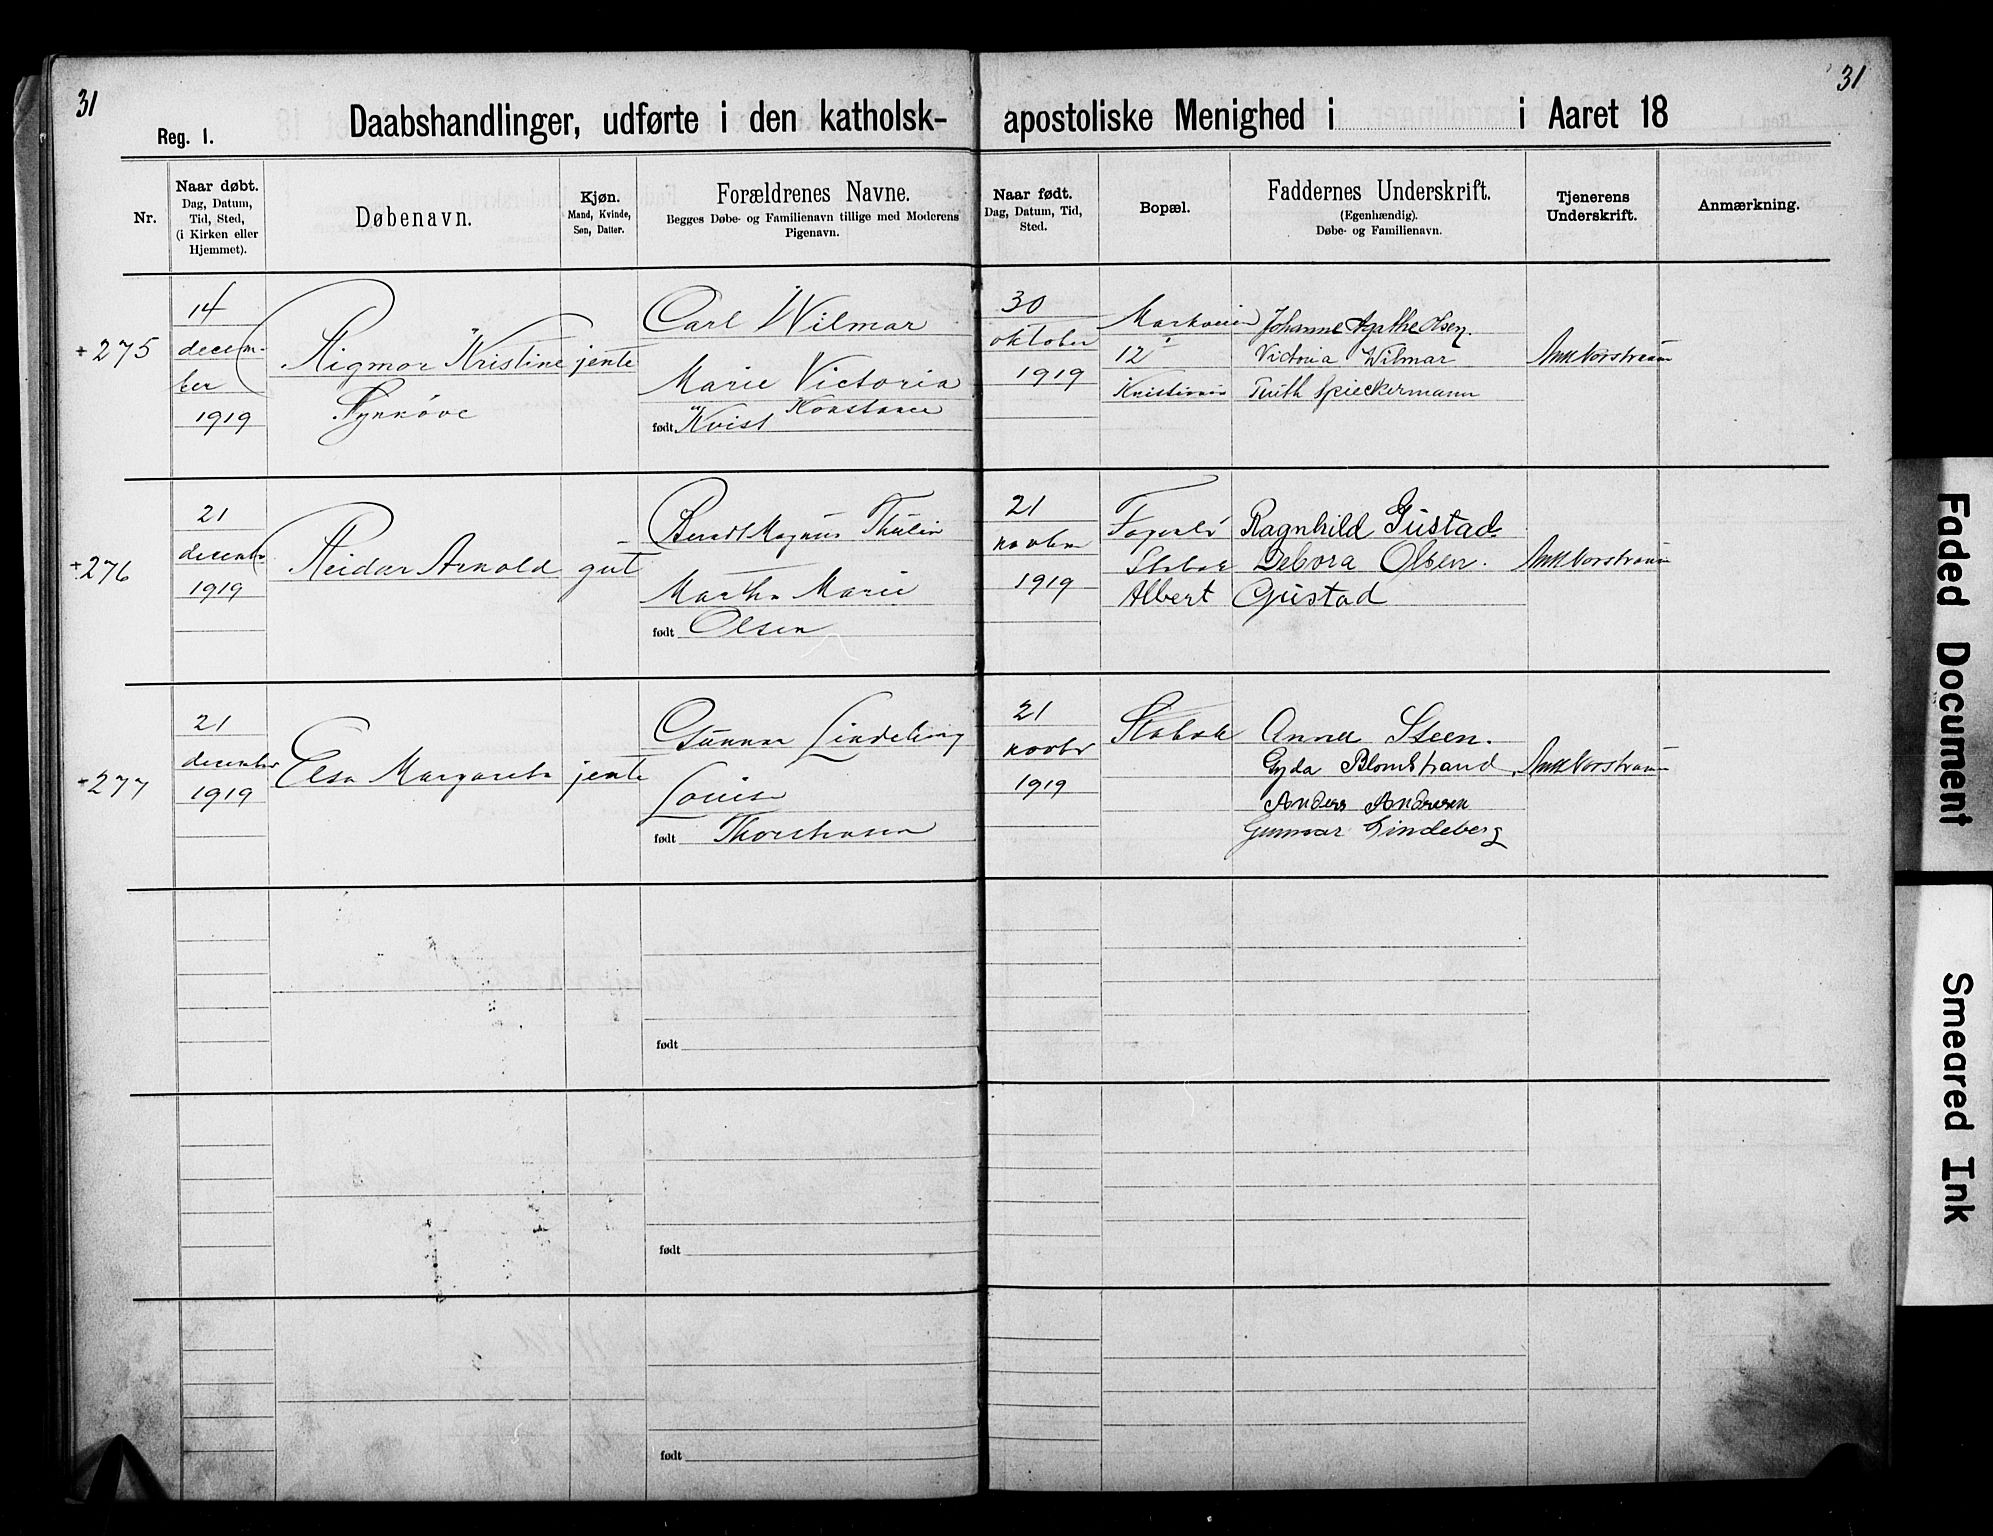 31
31
Reg. 1.
Daabshandlinger, udførte i den katholsk-
apostoliske Menighed i i Aaret 18
Nr.
Naar døbt.
Dag, Datum,
Tid, Sted,
(i Kirken eller
Hjemmet).
Døbenavn.
Kjøn.
Mand, Kvinde,
Søn, Datter.
Forældrenes Navne.
Begges Døbe- og Familienavn tillige med Moderens
Pigenavn.
Naar født.
Dag, Datum, Tid,
Sted.
Bopæl.
Faddernes Underskrift.
(Egenhændig).
Døbe- og Familienavn.
Tjenerens
Underskrift.
Anmærkning.
+ 275
14
decem-
ber
1919
Rigmor Kristine
Synnöve
jente
Carl Wilmar
Marie Victoria
Konstance
født Kvist
30
oktober
1919
Markveien
12
Kristiania
Johanne Agathe Olsen.
Victoria Wilmar
Ruth Spieckermann
+ 276
21
decembr
1919
Reidar Arnold
gut
Berndt Magnus Thulin
Martha Marie
født Olsen
21
novbr
1919
Stabæk
Ragnhild Gustad.
Debora Olsen.
Albert Gustad
+ 277
21
decembr
1919
Elsa Margareta
jente
Gunnar Lindeberg
Louise
født Thorstensen
21
novbr
1919
Stabæk
Anna Steen.
Gyda Blomstrand
Anders Andresen
Gunnar Lindeberg
født
født
født
Faded Document
Smeared Ink